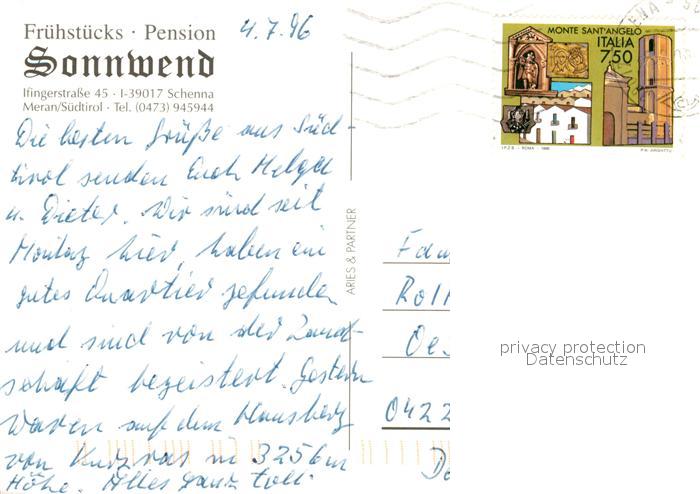 Frühstücks · Pension
Sonnwend
Ifingerstraße 45 · I-39017 Schenna
Meran/Südtirol · Tel. (0473) 945944
4.7.96
Die besten Grüße aus Süd-
tirol senden Euch Helga
u. Dieter. Wir sind seit
Montag hier, haben ein
gutes Quartier gefunden
und sind von der Land-
schaft begeistert. Gestern
waren auf dem
von Kurzras in 3256 m
Höhe. Alles ganz toll.
ARIES & PARTNER
MONTE SANT'ANGELO
ITALIA
750
I.P.Z.S. - ROMA
Fam
Rol
Oe
0422
privacy protection
Datenschutz